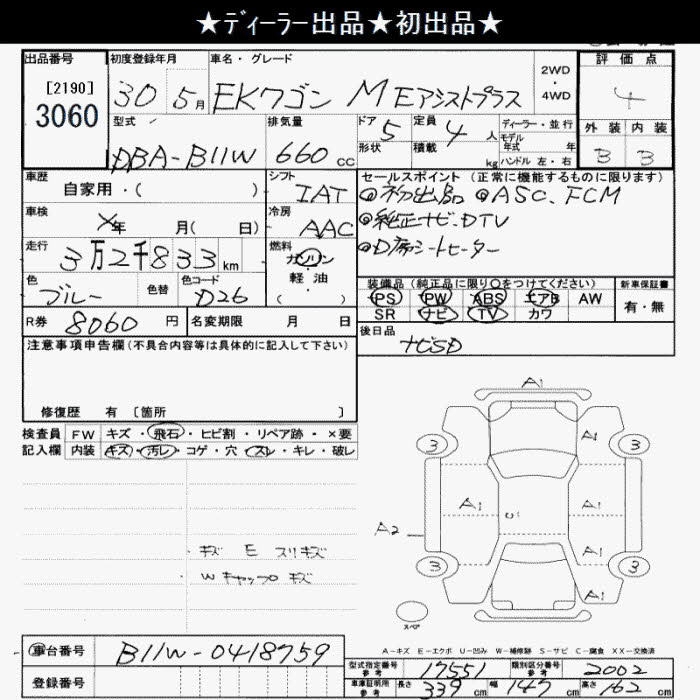 ★ディーラー出品★初出品★
出品番号 初度登録年月 車名・グレード 2WD・4WD 評価点
[2190]
3060
30 5月 EKワゴン M Eアシストプラス 4
型式 排気量 ドア 定員 ディーラー・並行 外装 内装
DBA-B11W 660cc 5 4人 モデル年式 年式 B B
形状 積載 kg ハンドル 左・右
車歴 シフト セールスポイント (正常に機能するものに限ります)
自家用・( ) IAT ◎初出品 ◎ASC、FCM
車検 冷房 ◎純正ナビ・DTV
×年 月( 日) AAC ◎D席シートヒーター
走行 燃料
3万2千833km ガソリン
軽・油
( )
色 色替 色コード
ブルー D26
装備品 (純正品に限り○をつけてください) 新車保証書
PS PW ABS エアB AW 有・無
SR ナビ TV カワ
R券 8060円 名変期限 月 日
後日品
ナビSD
注意事項申告欄(不具合内容等は具体的に記入して下さい)
修復歴 有 〔箇所 〕
検査員 FW キズ・飛石・ヒビ割・リペア跡・×要
記入欄 内装 キズ・汚レ・コゲ・穴・スレ・キレ・破レ
キズ E スリキズ
Wキャップ キズ
A1
3 A1 3
A1 A1
A2
A1
3 3
A1
スペア
A-キズ E-エクボ U-凹み W-補修跡 S-サビ C-腐食 XX-交換済
車台番号 B11W-0418759
登録番号
型式指定番号 参考 17551 類別区分番号 参考 2002
車庫証明用 参考 長さ 339cm 幅 147cm 高さ 162cm